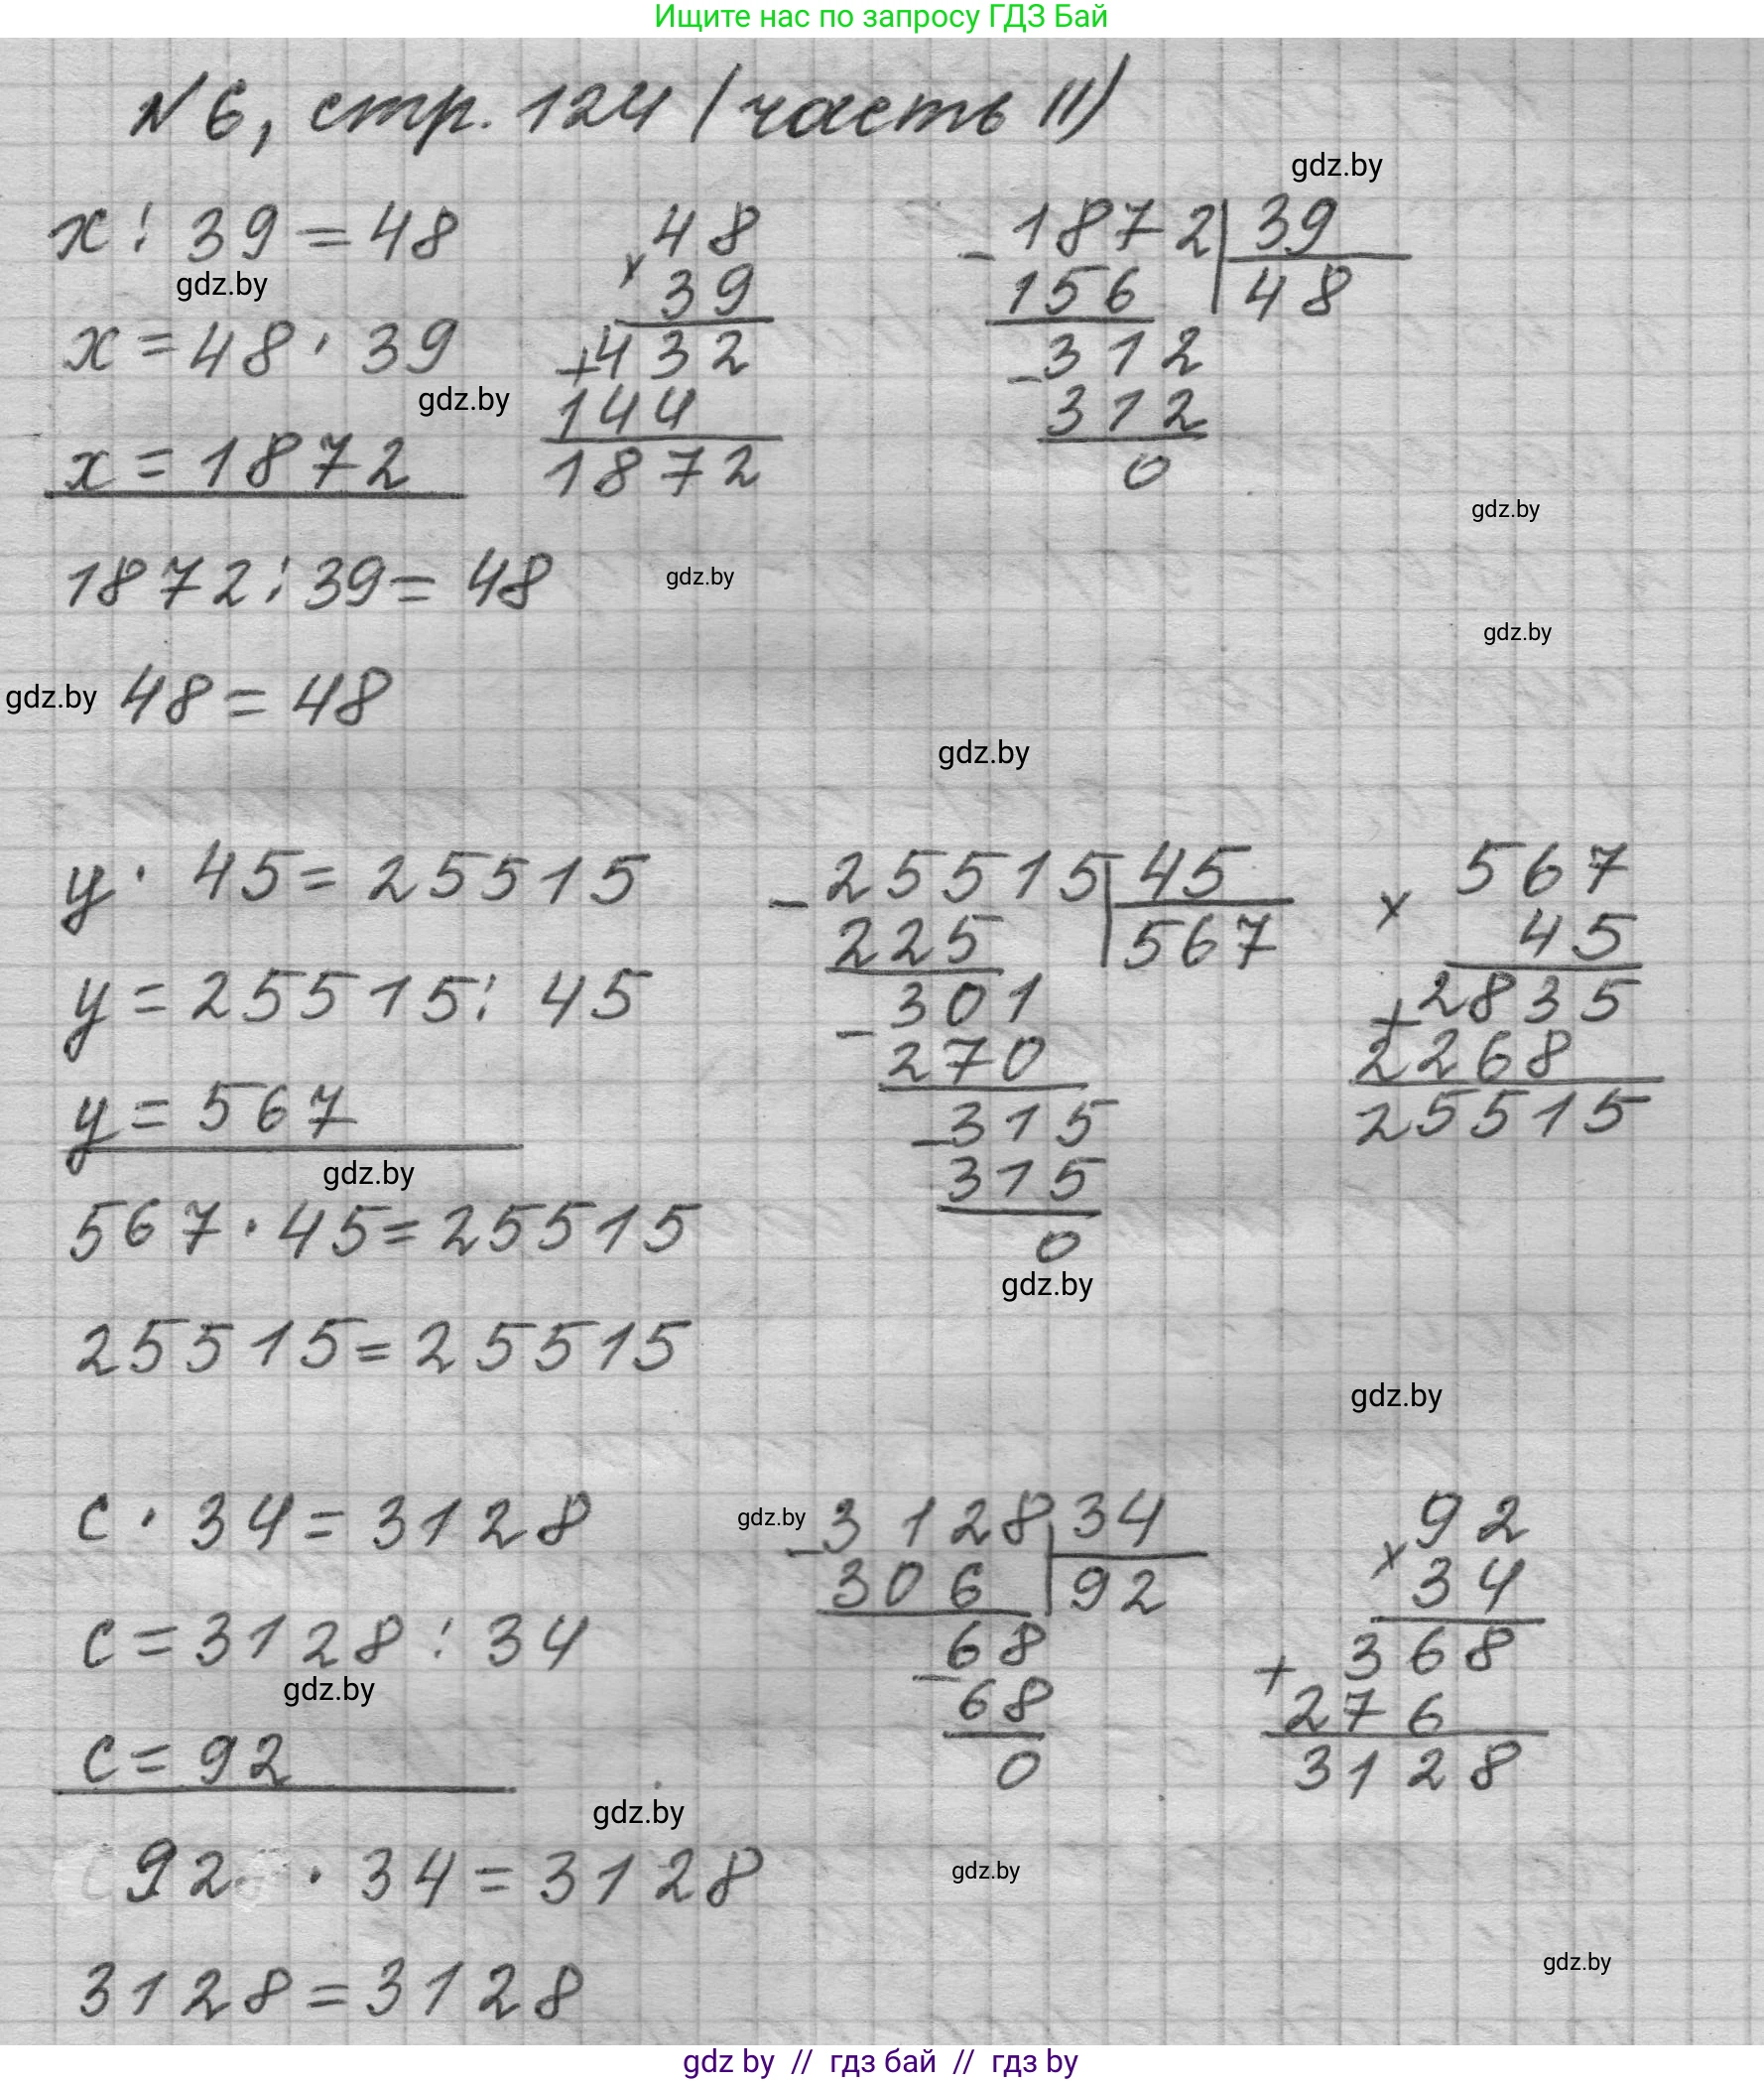 Ищите нас по запросу ГДЗ Бай
№6, стр. 124 (часть II)
gdz.by
x : 39 = 48
gdz.by
x = 48 · 39
gdz.by
x = 1872
× 48
39
+ 432
144
1872
- 1872 | 39
156 | 48
- 312
312
0
gdz.by
1872 : 39 = 48
gdz.by
gdz.by
gdz.by
48 = 48
gdz.by
y · 45 = 25515
y = 25515 : 45
y = 567
gdz.by
567 · 45 = 25515
25515 = 25515
- 25515 | 45
225 | 567
- 301
270
- 315
315
0
gdz.by
× 567
45
+ 2835
2268
25515
gdz.by
c · 34 = 3128
c = 3128 : 34
gdz.by
c = 92
gdz.by
- 3128 | 34
306 | 92
- 68
68
0
× 92
34
+ 368
276
3128
gdz.by
92 · 34 = 3128
gdz.by
3128 = 3128
gdz.by
gdz by // гдз бай // гдз by